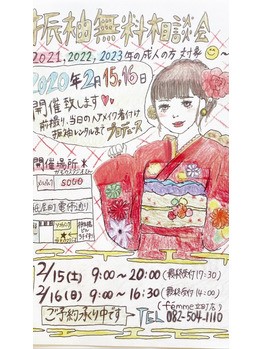 振袖無料相談会
2021,2022,2023年の成人の方対象
2020年2月15,16日
開催致します
前撮り、当日のヘアメイク着付け
振袖レンタルまでプロデュース
開催場所
SOGO
電停辺り
2/15(土) 9:00〜20:00 (最終受付17:30)
2/16(日) 9:00〜16:30 (最終受付14:00)
(femme立町店)
ご予約承り中です TEL 082-504-1110